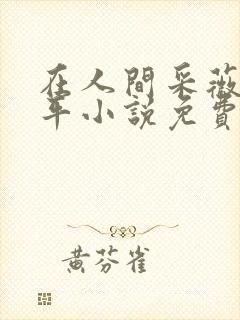 在人間采薇
年小説免費
黃芬雀